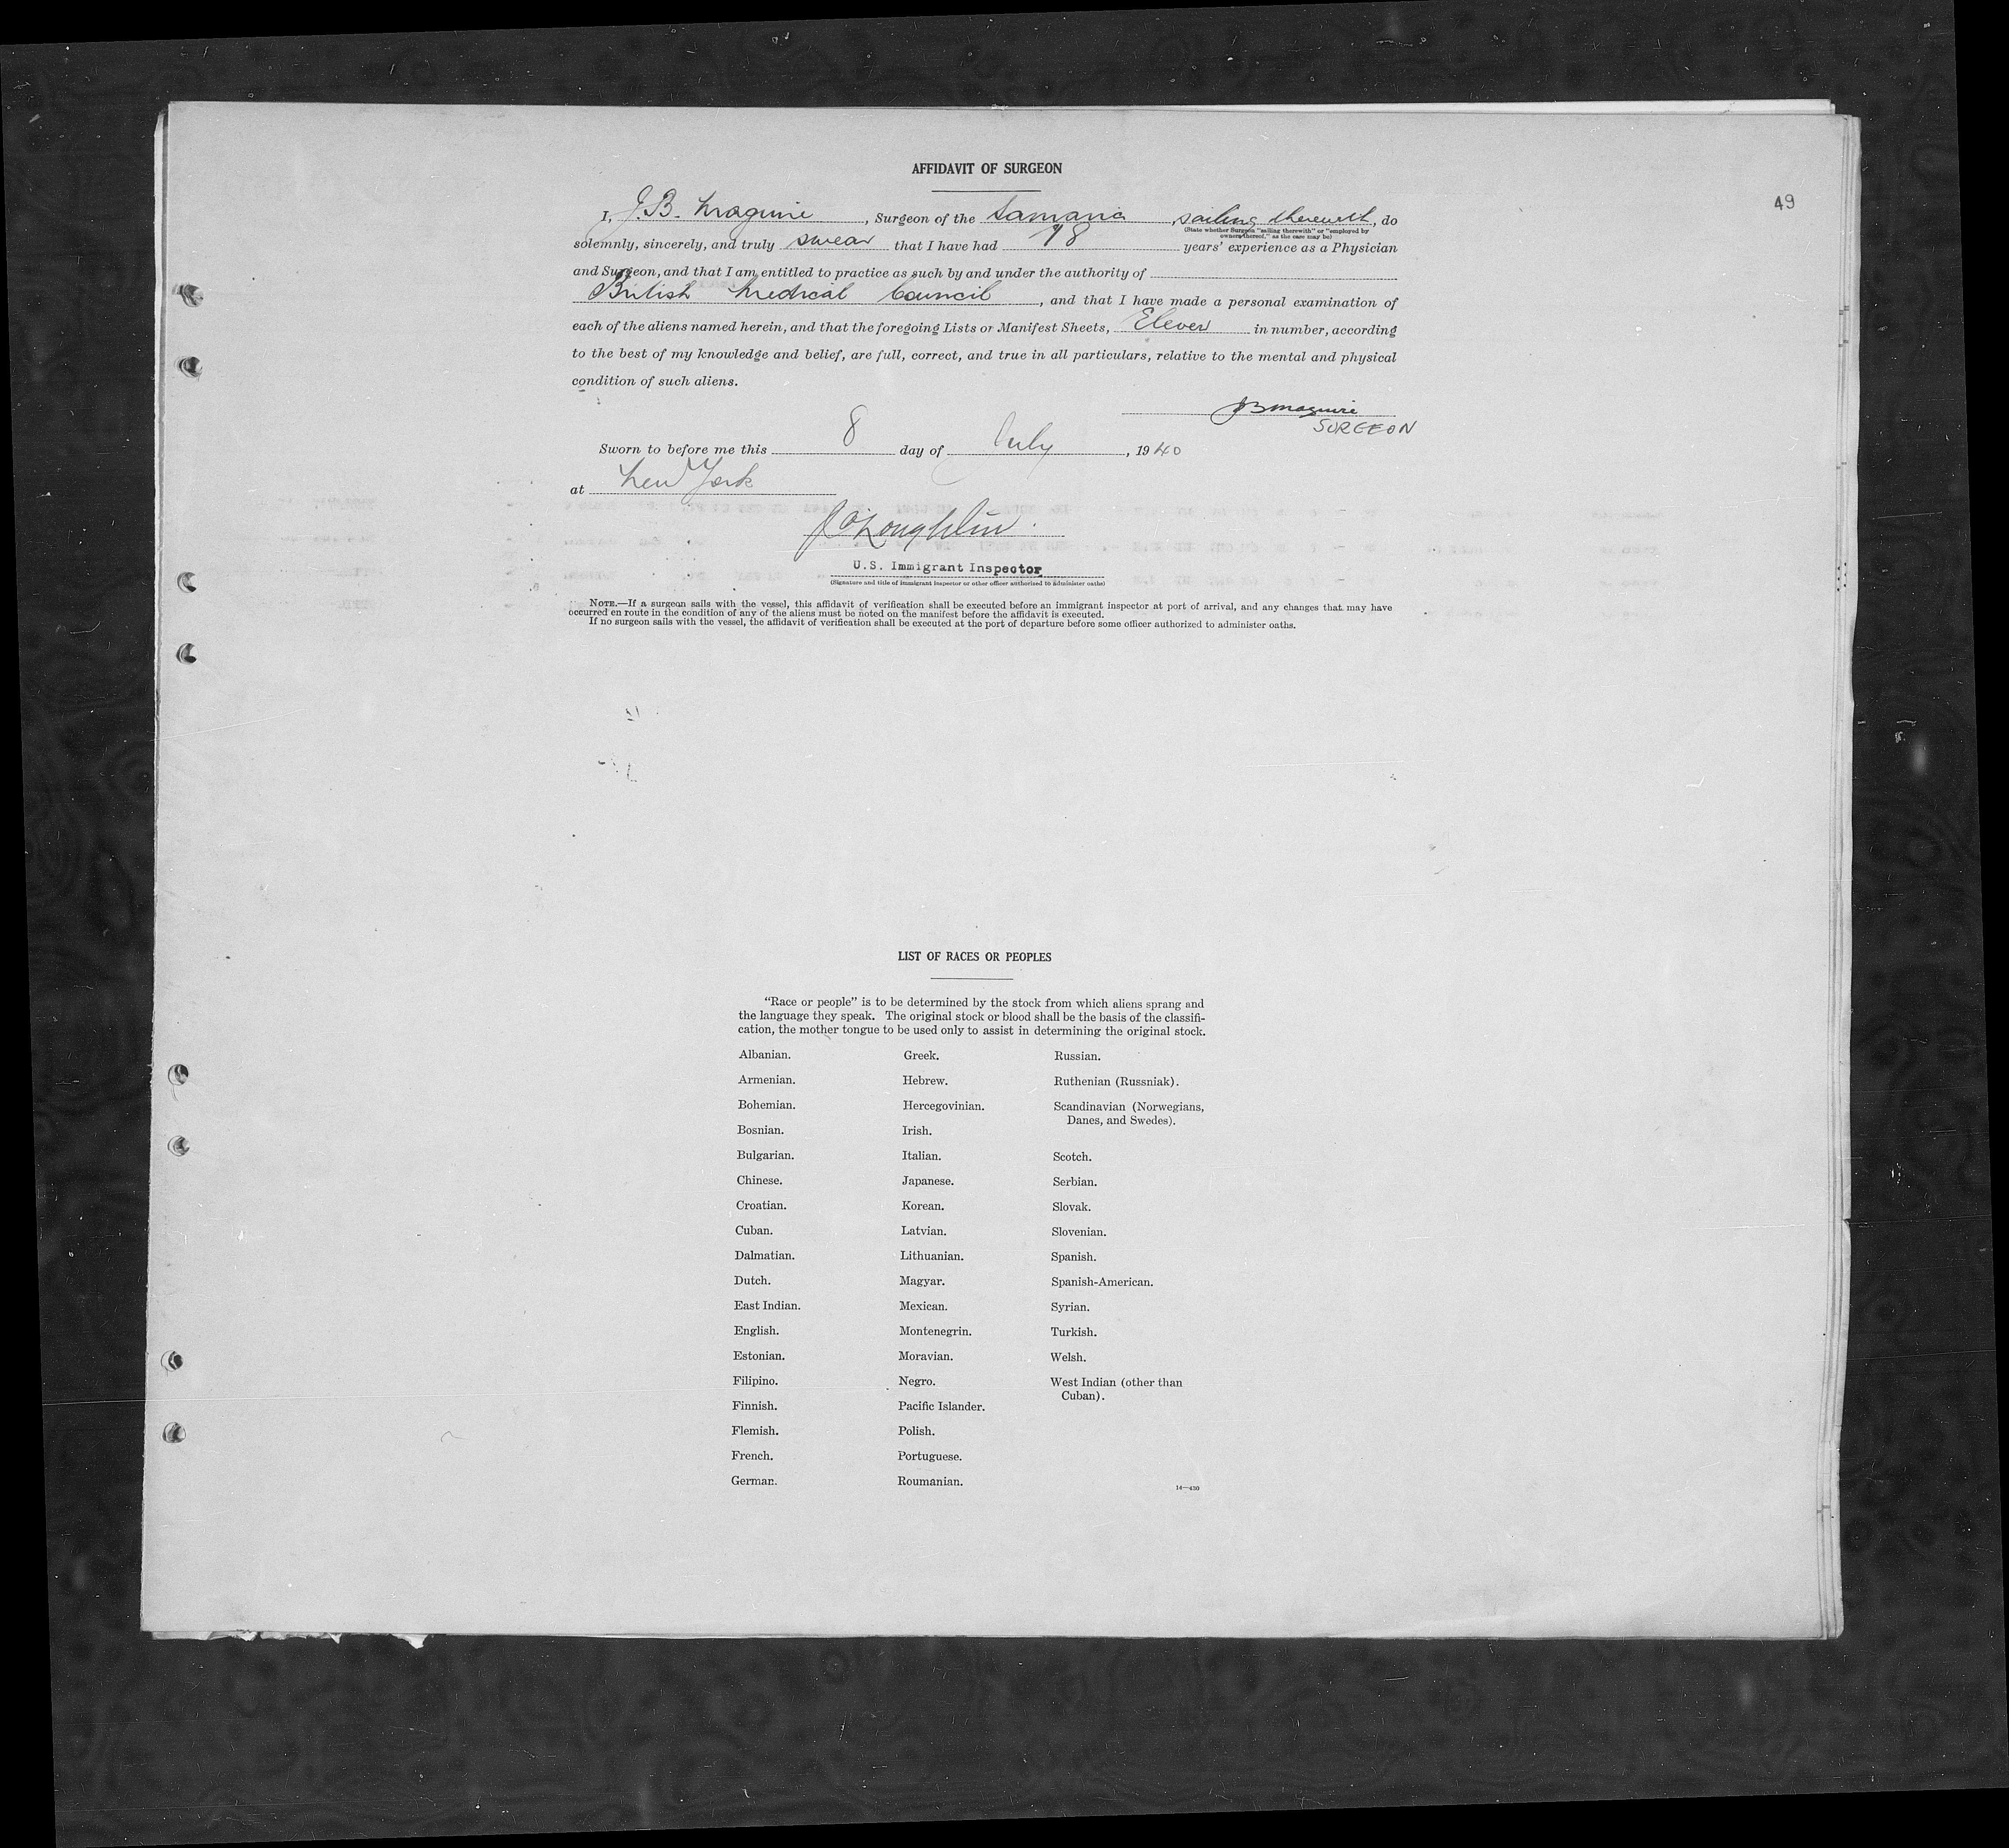 49
AFFIDAVIT OF SURGEON
I, J.B. Maguire, Surgeon of the Samaria, sailing therewith, do
(State whether Surgeon "sailing therewith" or "employed by
owners thereof," as the case may be)
solemnly, sincerely, and truly swear that I have had 18 years' experience as a Physician
and Surgeon, and that I am entitled to practice as such by and under the authority of
British Medical Council, and that I have made a personal examination of
each of the aliens named herein, and that the foregoing Lists or Manifest Sheets, Eleven in number, according
to the best of my knowledge and belief, are full, correct, and true in all particulars, relative to the mental and physical
condition of such aliens.
JB Maguire
SURGEON
Sworn to before me this 8 day of July, 1940
at New York
J O'Loughlin
U.S. Immigrant Inspector
(Signature and title of immigrant inspector or other officer authorized to administer oaths)
NOTE.—If a surgeon sails with the vessel, this affidavit of verification shall be executed before an immigrant inspector at port of arrival, and any changes that may have
occurred en route in the condition of any of the aliens must be noted on the manifest before the affidavit is executed.
If no surgeon sails with the vessel, the affidavit of verification shall be executed at the port of departure before some officer authorized to administer oaths.
LIST OF RACES OR PEOPLES
"Race or people" is to be determined by the stock from which aliens sprang and
the language they speak. The original stock or blood shall be the basis of the classifi-
cation, the mother tongue to be used only to assist in determining the original stock.
Albanian.
Armenian.
Bohemian.
Bosnian.
Bulgarian.
Chinese.
Croatian.
Cuban.
Dalmatian.
Dutch.
East Indian.
English.
Estonian.
Filipino.
Finnish.
Flemish.
French.
German.
Greek.
Hebrew.
Hercegovinian.
Irish.
Italian.
Japanese.
Korean.
Latvian.
Lithuanian.
Magyar.
Mexican.
Montenegrin.
Moravian.
Negro.
Pacific Islander.
Polish.
Portuguese.
Roumanian.
Russian.
Ruthenian (Russniak).
Scandinavian (Norwegians,
Danes, and Swedes).
Scotch.
Serbian.
Slovak.
Slovenian.
Spanish.
Spanish-American.
Syrian.
Turkish.
Welsh.
West Indian (other than
Cuban).
14—430